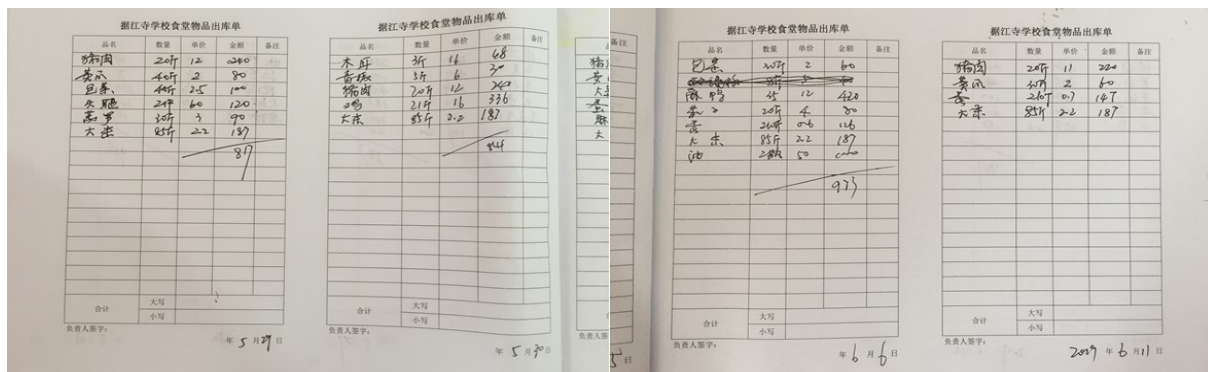 据江寺学校食堂物品出库单
品名 数量 单价 金额 备注
猪肉 20斤 12 240
黄瓜 40斤 2 80
包菜 40斤 2.5 100
火腿 2件 60 120
30斤 3 90
大米 85斤 2.2 187
817
合计 大写
小写
负责人签字:
年 5 月 29 日
据江寺学校食堂物品出库单
品名 数量 单价 金额 备注
木耳 3斤 16 48
青椒 5斤 6 30
猪肉 20斤 12 240
鸡 21斤 16 336
大米 85斤 2.2 187
合计 大写
小写
负责人签字:
年 5 月 30 日
备注
猪
黄
大
大
据江寺学校食堂物品出库单
品名 数量 单价 金额 备注
包菜 30斤 2 60
鸭 35 12 420
20斤 4 80
0.6 126
大米 85斤 2.2 187
油 50
973
合计 大写
小写
负责人签字:
年 6 月 6 日
据江寺学校食堂物品出库单
品名 数量 单价 金额 备注
猪肉 20斤 11 220
黄瓜 30斤 2 60
210斤 0.7 147
大米 85斤 2.2 187
合计 大写
小写
负责人签字:
年 6 月 11 日